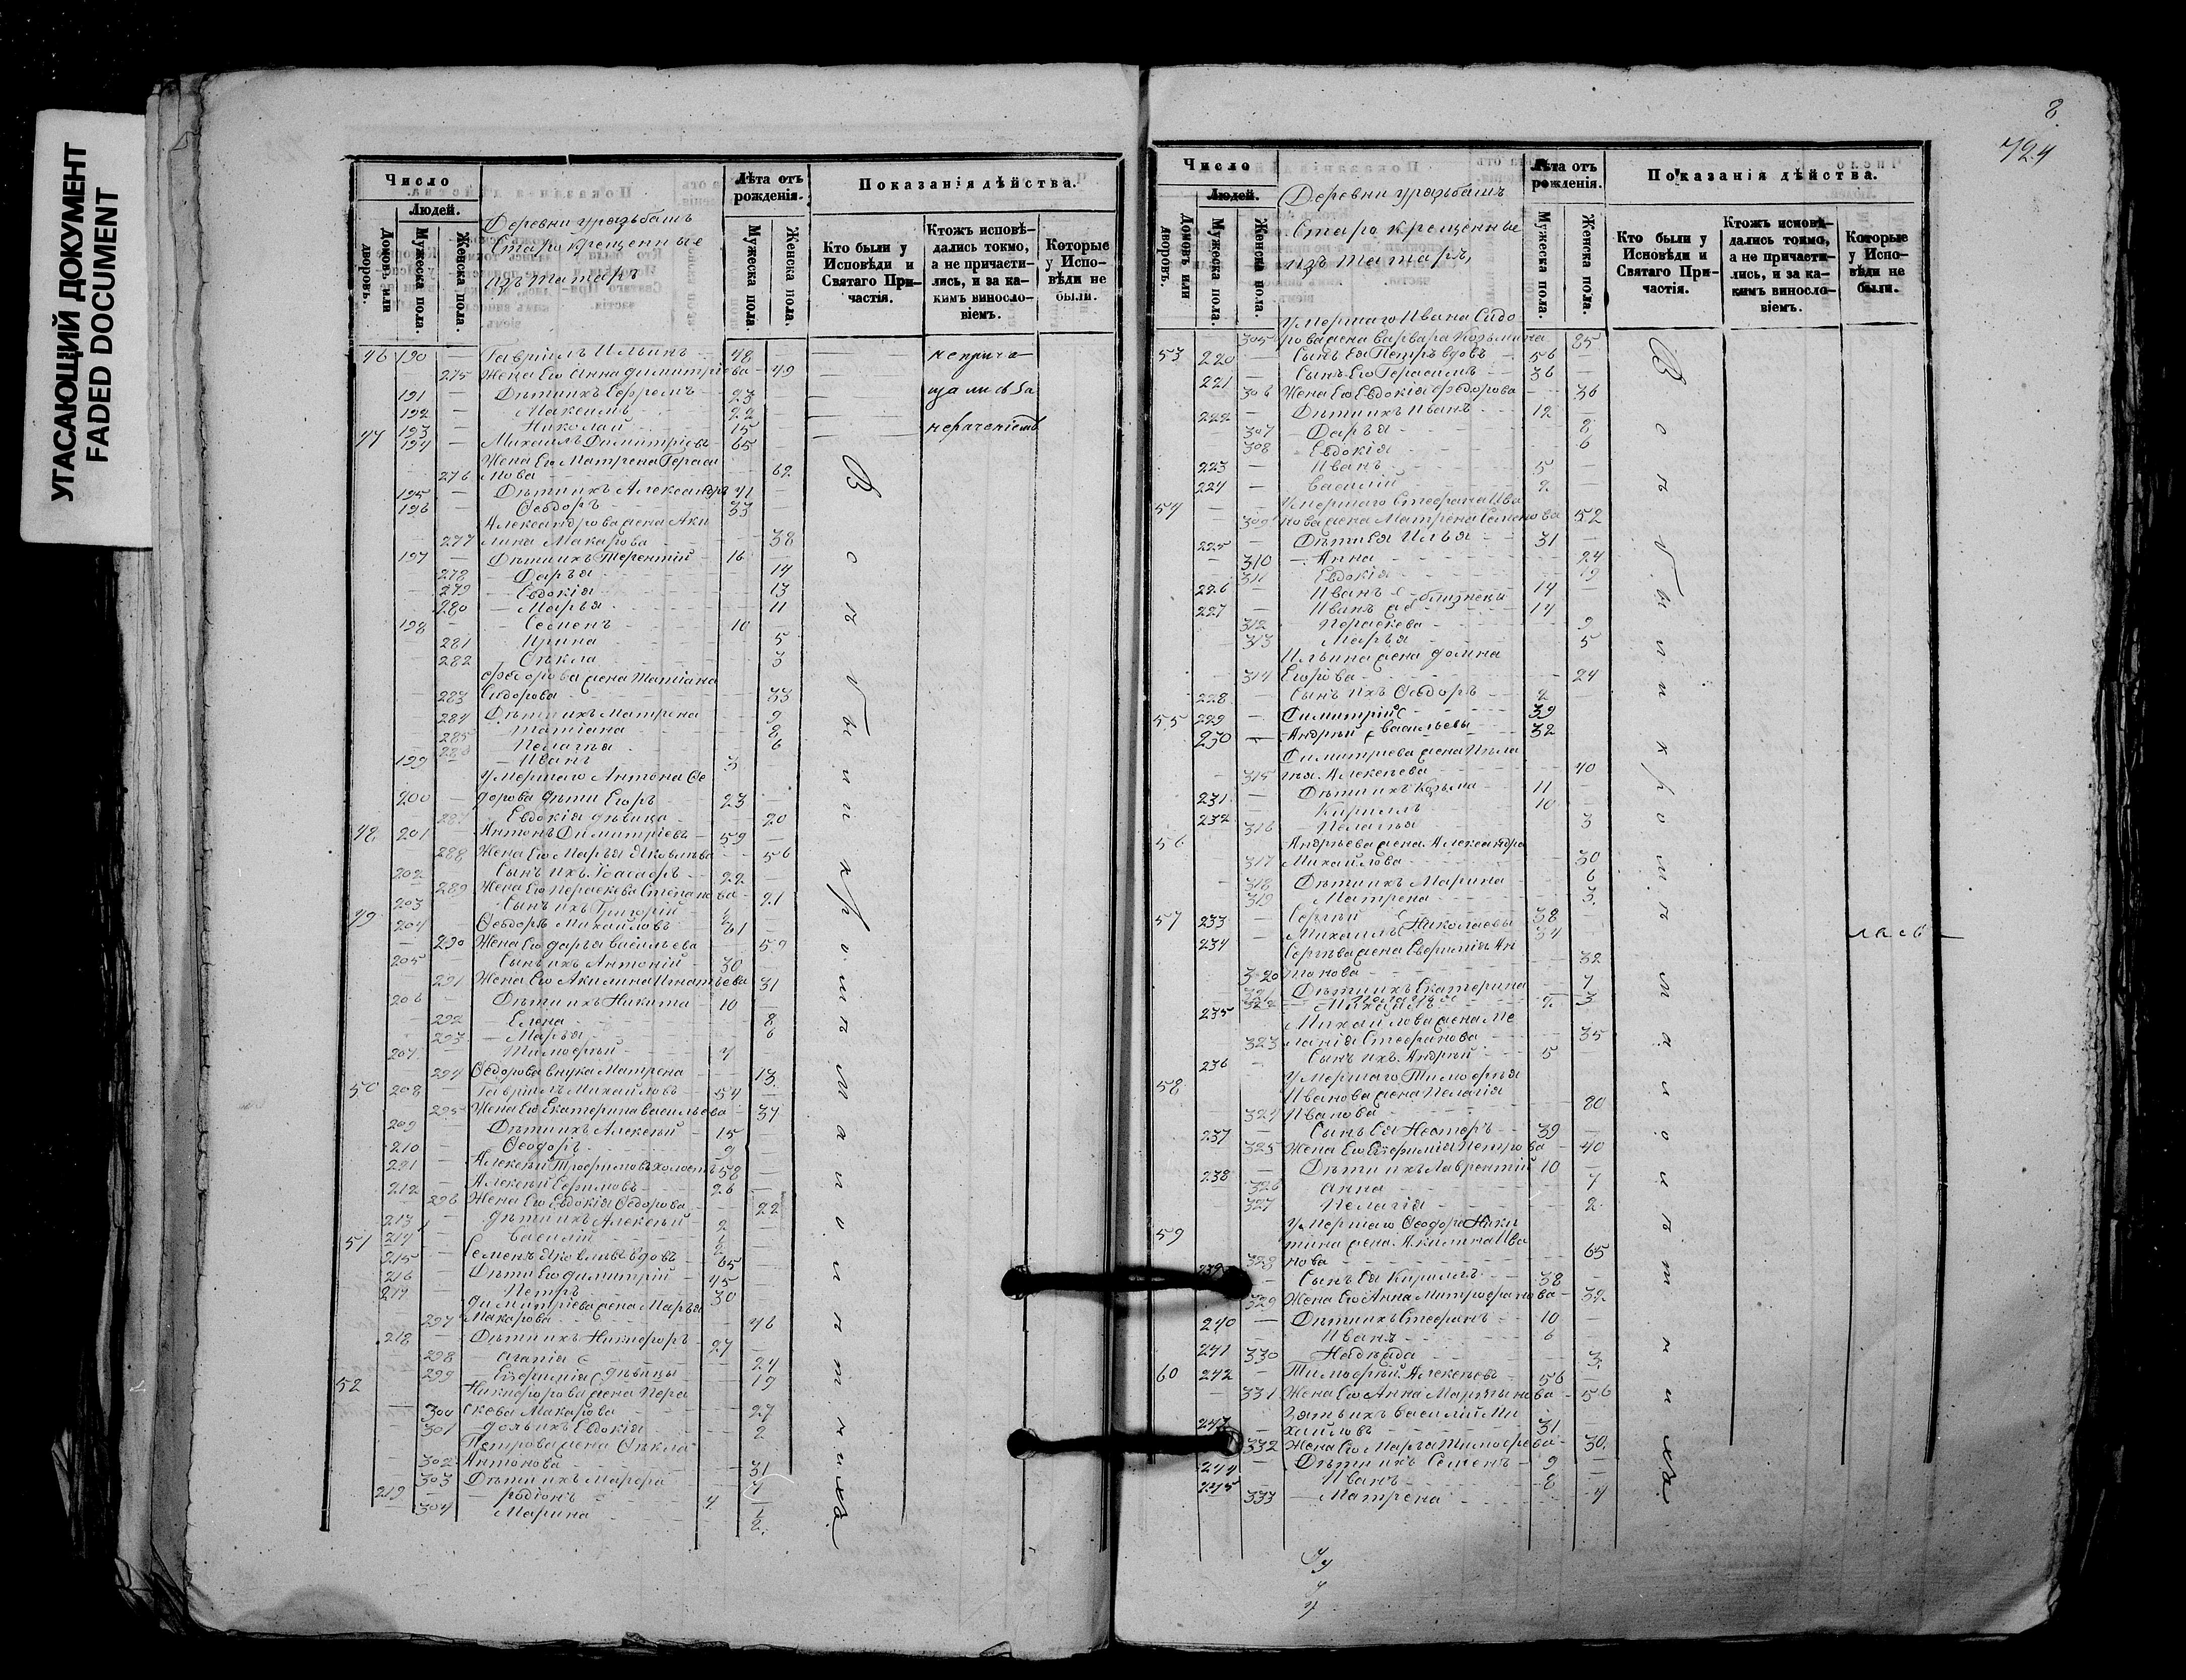 УГАСАЮЩИЙ ДОКУМЕНТ
FADED DOCUMENT
Число
Людей.
Домовъ или дворовъ.
Мужеска пола.
Женска пола.
Деревни Уразъбашъ
Старо крещенные
изъ татаръ
Лѣта отъ рожденія.
Мужеска пола.
Женска пола.
Показанія дѣйства.
Кто были у Исповѣди и Святаго Причастія.
Ктожъ исповѣдались токмо, а не причастились, и за какимъ винословіемъ.
Которые у Исповѣди не были.
46 190 — Гавріилъ Ильинъ 48 неприча
275 Жена Его Анна Димитріева 49
191 — Дѣти ихъ Ефремъ 23 щались за
192 — Максимъ 22
193 — Николай 15 нераченіемъ
47 194 — Михаилъ Димитріевъ 65
Жена Его Матрена Гераси
276 мова 62
195 — Дѣти ихъ Александръ 41
196 — Ѳеодоръ 33
Александрова жена Аки
277 лина Макарова 38
197 — Дѣти ихъ Терентій 16
278 — Дарья 14
279 — Евдокія 13
280 — Марья 11
198 — Семенъ 10
281 Ирина 5
282 Ѳекла 3
Ѳеодорова жена Татіана
283 Сидорова 33
284 Дѣти ихъ Матрена 9
285 — Татіана 8
286 — Пелагья 6
199 — Иванъ 3
Умершаго Антона Ѳе
200 — дорова дѣти Егоръ 23
287 Евдокія дѣвица 20
48 201 — Антонъ Димитріевъ 59
288 Жена Его Марья Яковлева 56
202 Сынъ ихъ 22
289 Жена Его Пераскева Степанова 21
203 Сынъ ихъ Григорій
49 204 Ѳеодоръ Михайловъ 61
290 Жена Его Дарья Васильева 59
205 — Сынъ ихъ Антоній 30
291 Жена Его Акилина Игнатьева 31
206 — Дѣти ихъ Никита 10
292 — Елена 8
293 — Марья 6
207 — Тимоѳей 4
294 Ѳедорова внука Матрена 13
50 208 — Гавріилъ Михайловъ 54
295 Жена Его Екатерина Васильева 37
209 — Дѣти ихъ Алексѣй 15
210 — Ѳеодоръ 9
211 — Алексѣй Трофимовъ холостъ 58
212 — Алексѣй Ефимовъ 26
296 Жена Его Евдокія Ѳедорова 22
213 — Дѣти ихъ Алексѣй 2
214 — Василій
51 215 — Семенъ Яковлевъ вдовъ 65
216 — Дѣти Его Димитрій 45
217 — Петръ 30
Димитріева жена Марья
297 Макарова 46
218 — Дѣти ихъ Никифоръ 27
298 — Агапія 24
299 — Евфимія дѣвицы 19
52 Никифорова жена Пера
300 скева Макарова 27
301 — дочь ихъ Евдокія 2
Петрова жена Ѳекла
302 Антонова 31
303 Дѣти ихъ Марфа 7
219 — Родіонъ 4
304 Марина
Вси бѣ
8
724
Число
Людей.
Домовъ или дворовъ.
Мужеска пола.
Женска пола.
Деревни Уразъбашъ
Старо крещенные
изъ татаръ,
Лѣта отъ рожденія.
Мужеска пола.
Женска пола.
Показанія дѣйства.
Кто были у Исповѣди и Святаго Причастія.
Ктожъ исповѣдались токмо, а не причастились, и за какимъ винословіемъ.
Которые у Исповѣди не были.
Умершаго Ивана Сидо
305 рова жена Варвара Козьмина 85
53 220 — Сынъ Ея Петръ вдовъ 56
221 — Сынъ Его Герасимъ 36
306 Жена Его Евдокія Ѳедорова 36
222 — Дѣти ихъ Иванъ 12
307 — Дарья 8
308 — Евдокія 6
223 — Иванъ 5
224 — Василій 2
54 Умершаго Стефана Ива
309 нова жена Матрена Семенова 52
225 — Дѣти Ея Илья 31
310 — Анна 24
311 Евдокія 19
226 — Иванъ близнецы 14
227 — Иванъ 14
312 Пераскева 9
313 Марья 5
Ильина жена Домна
314 Егорова 24
228 — Сынъ ихъ Ѳеодоръ 2
55 229 — Димитрій 39
230 — Андрей Васильевы 32
Димитріева жена Пела
315 гея Алексѣева 40
231 — Дѣти ихъ Козьма 11
232 Кириллъ 10
316 — Пелагья 3
56 Андреева жена Александра
317 Михайлова 30
318 Дѣти ихъ Марина 6
319 — Матрена 3
57 233 — Сергѣй 38
234 — Михаилъ Николаевы 34
Сергѣева жена Евфимія Ан
320 тонова 32
321 Дѣти ихъ Екатерина 7
235 — Михаилъ 2
Михайлова жена Ме
323 ланія Стефанова 35
236 — Сынъ ихъ Андрей 5
58 Умершаго Тимоѳея
Иванова жена Пелагія
324 Иванова 80
237 — Сынъ Ея Несторъ 39
325 Жена Его Евфимія Петрова 40
238 — Дѣти ихъ Лаврентій 10
326 Анна 7
327 Пелагія 2
59 Умершаго Ѳеодора Ники
тина жена Акилина Ива
328 нова 65
239 — Сынъ Ея Кириллъ 38
329 Жена Его Анна Митрофанова 32
240 — Дѣти ихъ Стефанъ 10
241 — Иванъ 6
330 Надежда 3
60 242 — Тимоѳей Алексѣевъ 56
331 Жена Его Анна Мартынова 56
Зять ихъ Василій Ми
243 — хайловъ 31
332 Жена Его Марья Тимоѳеева 30
244 — Дѣти ихъ Семенъ 9
245 — Иванъ 8
333 — Матрена 4